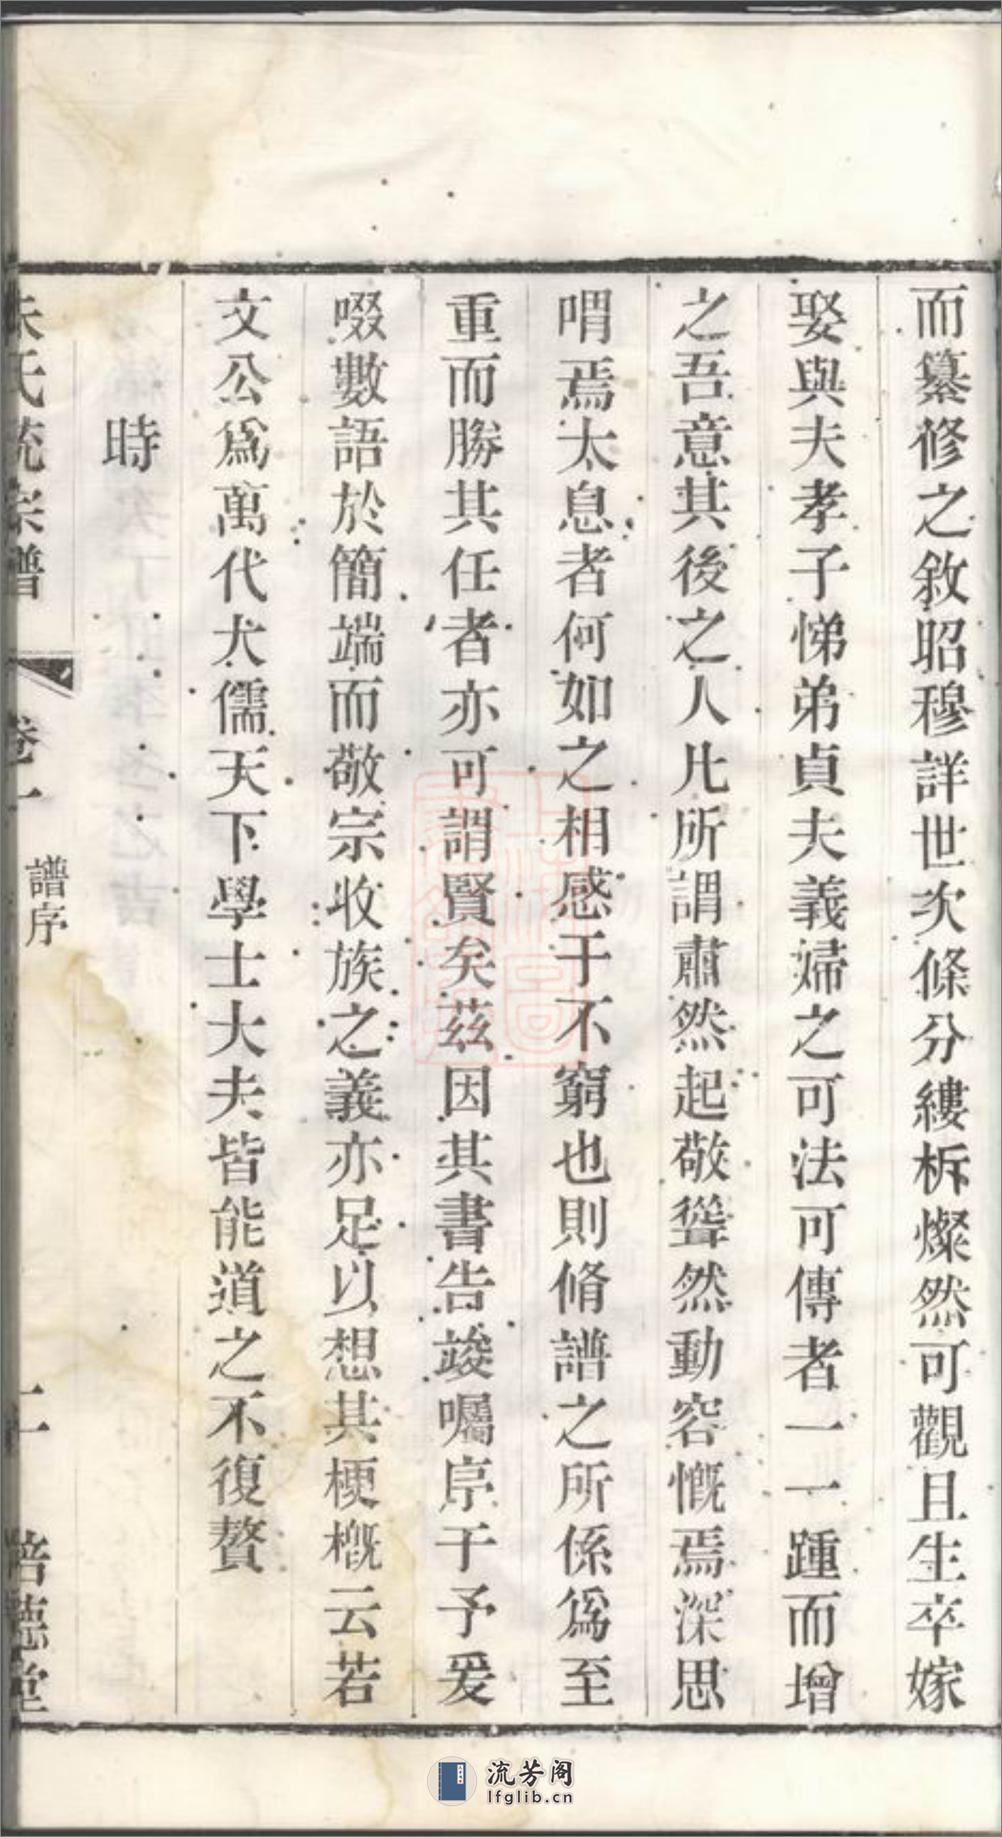 而纂修之敘昭穆詳世次條分縷析燦然可觀且生卒嫁
娶與夫孝子悌弟貞夫義婦之可法可傳者一一踵而增
之吾意其後之人凡所謂肅然起敬聳然動容慨焉深思
喟焉太息者何如之相感于不窮也則脩譜之所係爲至
重而勝其任者亦可謂賢矣茲因其書告竣囑序于予爰
啜數語於簡端而敬宗收族之義亦足以想其梗槪云若
文公爲萬代大儒天下學士大夫皆能道之不復贅
時
朱氏統宗譜
卷一
譜序
二
培德堂
流芳阁
lfglib.cn